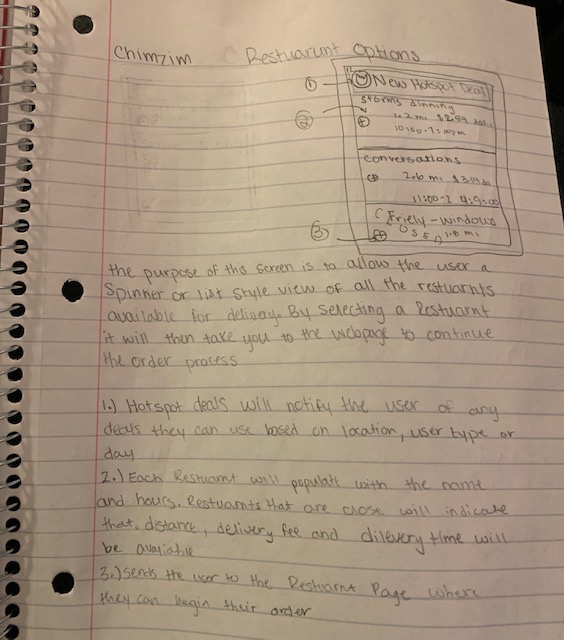 Chimzim Restuarunt Options
① New Hotspot Deal
Storms dinning
②
10.2 mi $2.54
conversations
2.6 mi
11:00-2 4-9:00
Friely - windows
③ 1.8 mi
the purpose of this screen is to allow the user a
Spinner or list style view of all the restuarnts
available for delivery. By selecting a Restuarnt
it will then take you to the webpage to continue
the order process
1.) Hotspot deals will notify the user of any
deals they can use based on location, user type or
day
2.) Each Restuarnt will populate with the name
and hours. Restuarnts that are close will indicate
that. distance, delivery fee and dilevery time will
be avaliable
3.) sents the user to the Restuarnt Page where
they can begin their order